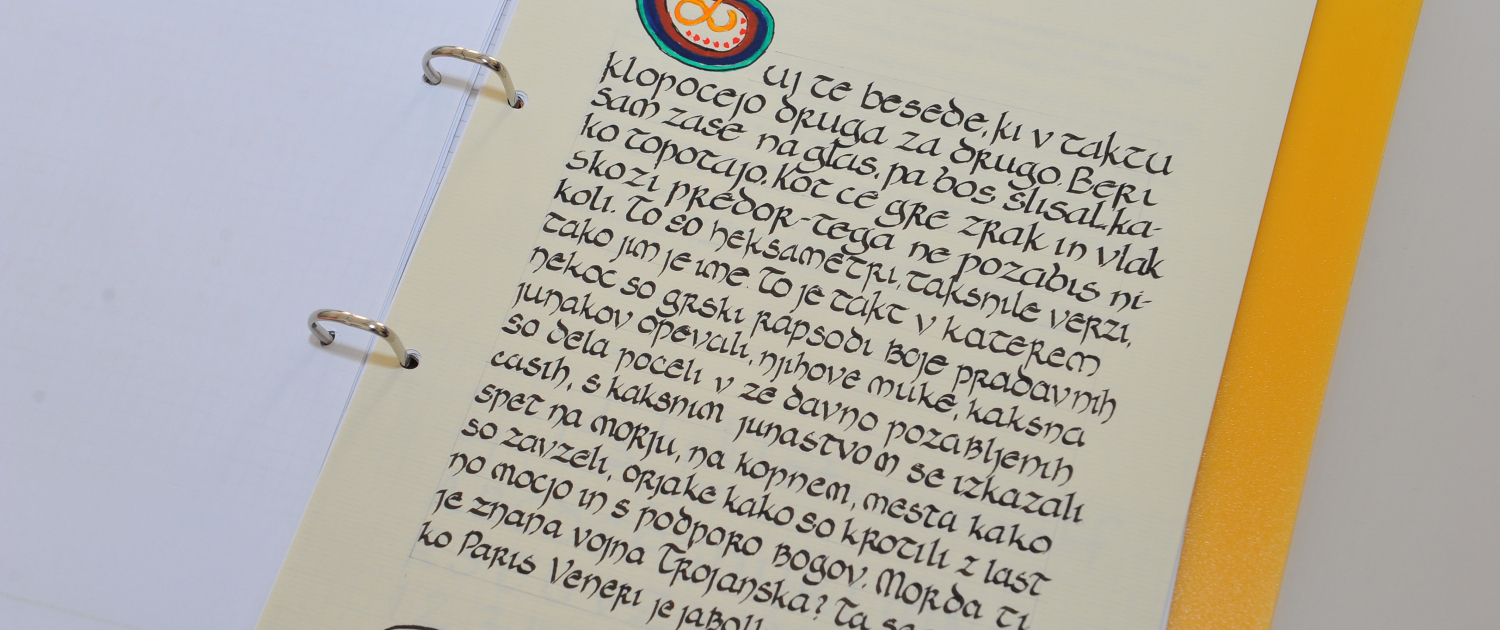 uj te besede, ki v taktu
klopocejo druga za drugo. Beri
sam zase na glas, pa bos slisal, ka-
ko topotajo. Kot ce gre zrak in vlak
skozi predor - tega ne pozabis ni-
koli. To so heksametri, taksnile verzi,
tako jim je ime. To je takt v katerem
nekoc so grski rapsodi boje pradavnih
junakov opevali, njihove muke, kaksna
so dela poceli v ze davno pozabljenih
casih, s kaksnim junastvom se izkazali
spet na morju, na kopnem, mesta kako
so zavzeli, orjake kako so krotili z last
no mocjo in s podporo bogov. Morda ti
je znana vojna Trojanska? Ta
ko Paris Veneri je